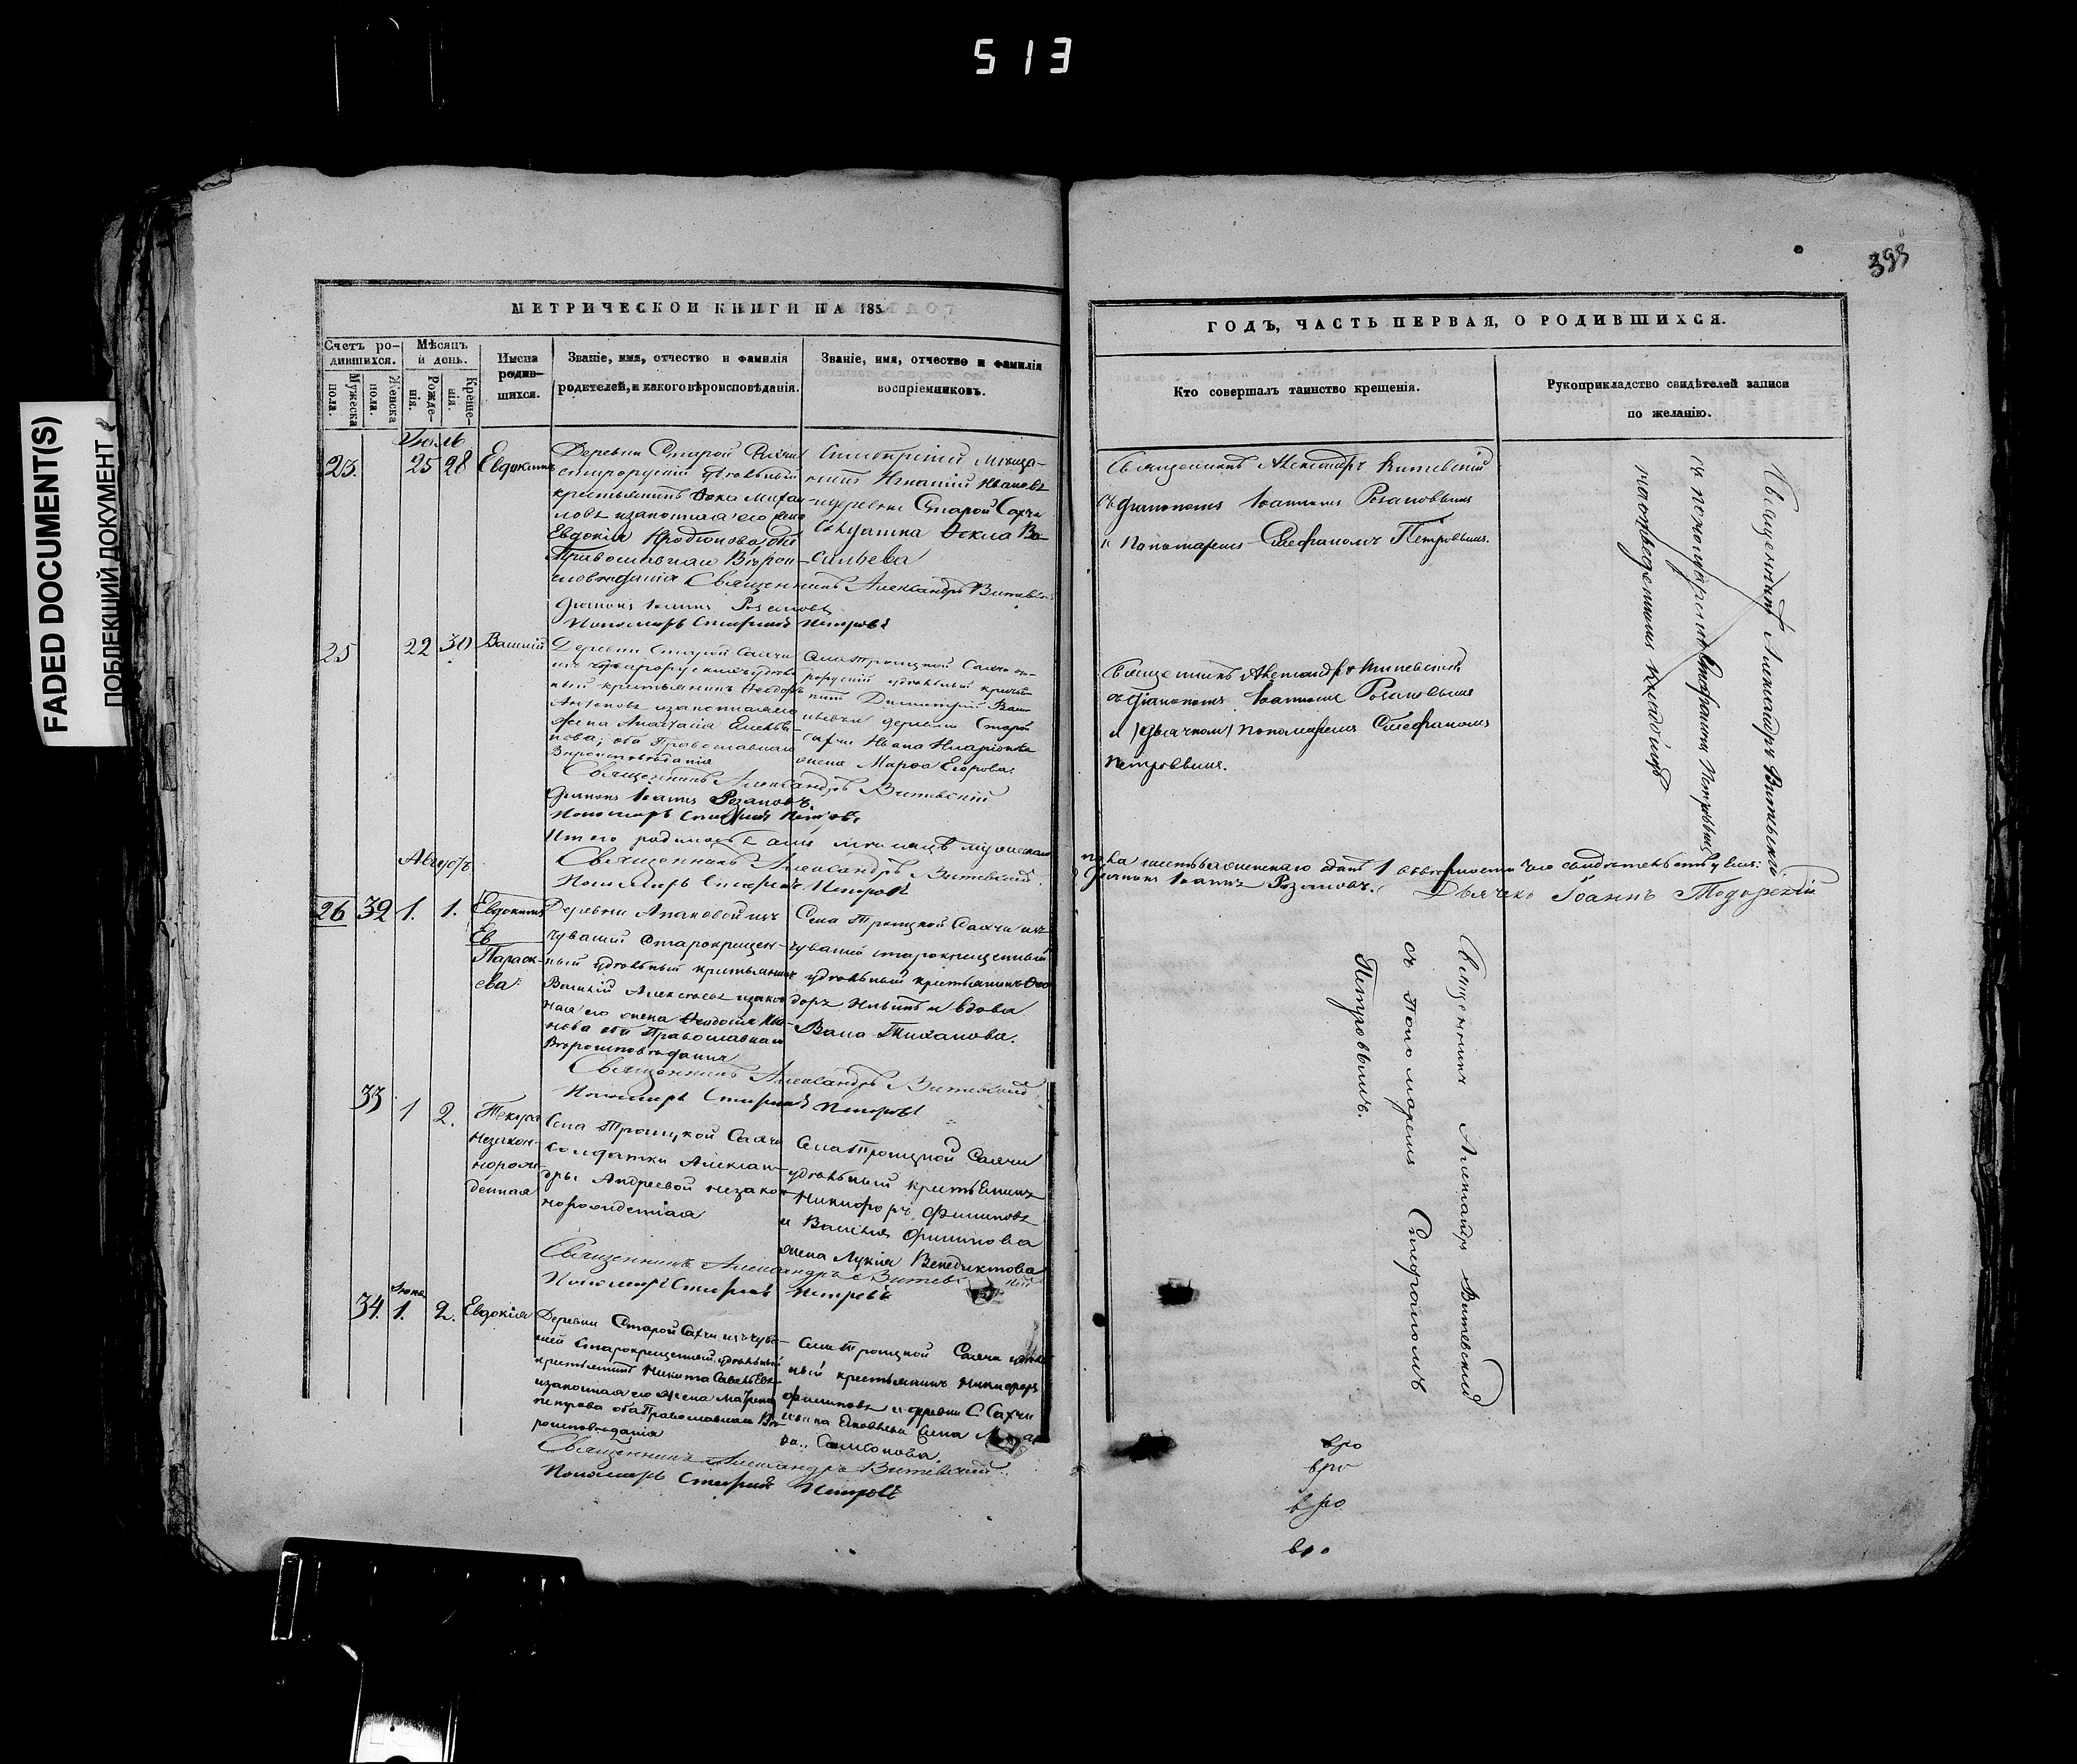 513
FADED DOCUMENT(S)
ПОБЛЕКШИЙ ДОКУМЕНТ
МЕТРИЧЕСКОЙ КНИГИ НА 185
Счетъ ро-
дившихся.
Мѣсяцъ
и день.
Имена
родив-
шихся.
Званіе, имя, отчество и фамилія
родителей, и какого вѣроисповѣданія.
Званіе, имя, отчество и фамилія
воспріемниковъ.
Мужеска
пола.
Женска
пола.
Рожде-
нія.
Креще-
нія.
Іюль
23. 25 28 Евдокимъ
Деревни Старой
удѣльный
крестьянинъ Ѳока Михаи-
ловъ и законная его жена
Евдокія Иродіонова, оба
Православнаго Вѣрои-
сповѣданія Священникъ Александръ Витевскій
Діаконъ Іоаннъ Розановъ
Пономарь Стефанъ Петровъ
Симбирскій мѣща-
нинъ Игнатій Ивановъ
и деревни Старой Сахчи
солдатка Ѳекла Ва-
сильева
25 22 30 Василій
Деревни Старой Сахчи
удѣль-
ный крестьянинъ Ѳеодоръ
Антоновъ и законная его
жена Анастасія Емелья-
нова, оба Православнаго
Вѣроисповѣданія
Священникъ Александръ Витевскій
Діаконъ Іоаннъ Розановъ
Пономарь Стефанъ Петровъ
Села Троицкой Сахчи
удѣльный кресть-
нинъ Димитрій Васи-
льевъ и деревни Старой
Сахчи Ивана Иларіонова
жена Марѳа Егорова.
Итого родилось въ семъ мѣсяцѣ мужеска
Августъ
Священникъ Александръ Витевскій
Пономарь Стефанъ Петровъ
26 32 1. 1. Евдокимъ
Ев
Параск-
ева
Деревни Апаковой изъ
чувашъ старокрещен-
ный удѣльный крестьянинъ
Василій Алексѣевъ и закон-
ная его жена Ѳеодосія Ива-
нова оба Православнаго
Вѣроисповѣданія
Священникъ Александръ Витевскій
Пономарь Стефанъ Петровъ
Села Троицкой Сахчи изъ
чувашъ старокрещенный
удѣльный крестьянинъ Ѳео-
доръ Ильинъ и вдова
Васа Тиханова.
33 1 2. Текуса
незакон-
норож-
денная
Села Троицкой Сахчи
солдатки Алексан-
дры Андреевой незакон-
норожденная
Священникъ Александръ Витевскій
Пономарь Стефанъ Петровъ
Села Троицкой Сахчи
удѣльный крестьянинъ
Никифоръ Филиповъ
и Василья Филипова
жена Лукія Венедиктова
Іюня
34. 1. 2. Евдокія
Деревни Старой Сахчи изъ чува-
шей старокрещенный удѣльный
крестьянинъ Никита Савельевъ
и законная его жена Матрена
Петрова оба Православнаго Вѣ-
роисповѣданія
Священникъ Александръ Витевскій
Пономарь Стефанъ Петровъ
Села Троицкой Сахчи удѣль-
ный крестьянинъ Никифоръ
Филиповъ и деревни С. Сахчи
жена
Самсонова.
ГОДЪ, ЧАСТЬ ПЕРВАЯ, О РОДИВШИХСЯ.
Кто совершалъ таинство крещенія.
Рукоприкладство свидѣтелей записи
по желанію.
Священникъ Александръ Витевскій
съ діакономъ Іоанномъ Розановымъ
и Пономаремъ Стефаномъ Петровымъ.
Священникъ Александръ Витевскій
съ діакономъ Іоанномъ Розановымъ
и (дьячкомъ) Пономаремъ Стефаномъ
Петровымъ.
Священникъ Александръ Витевскій
съ пономаремъ Стефаномъ Петровымъ
пола шесть женскаго одна 1 въ вѣрности чего свидѣтельствуемъ:
Діаконъ Іоаннъ Розановъ.
Дьячекъ Іоаннъ Тодорскій
Священникъ Александръ Витевскій
съ Пономаремъ Стефаномъ
Петровымъ.
вро
вро
вро
вро